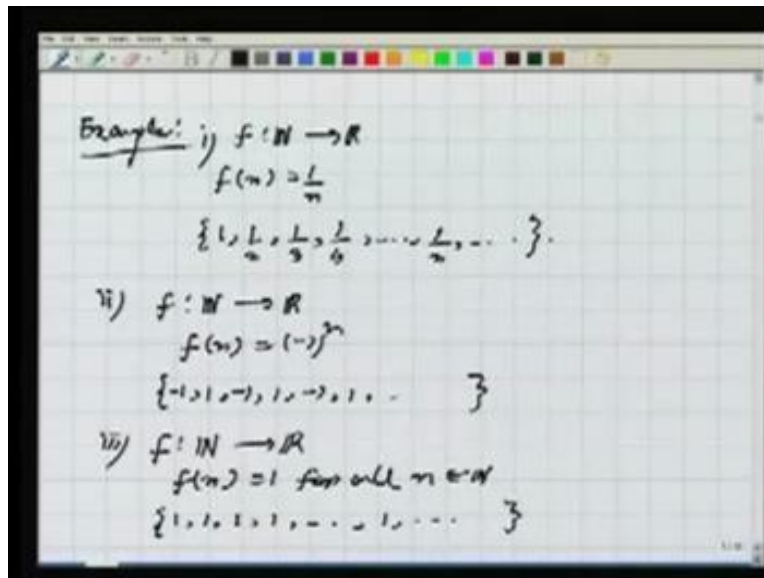 Example: i) f : ℕ → ℝ
f(n) = 1/n
{1, 1/2, 1/3, 1/4, ..., 1/n, ... }.
ii) f : ℕ → ℝ
f(n) = (-1)^n
{-1, 1, -1, 1, -1, 1, .. }
iii) f : ℕ → ℝ
f(n) = 1 for all n ∈ ℕ
{1, 1, 1, 1, ..., 1, ... }